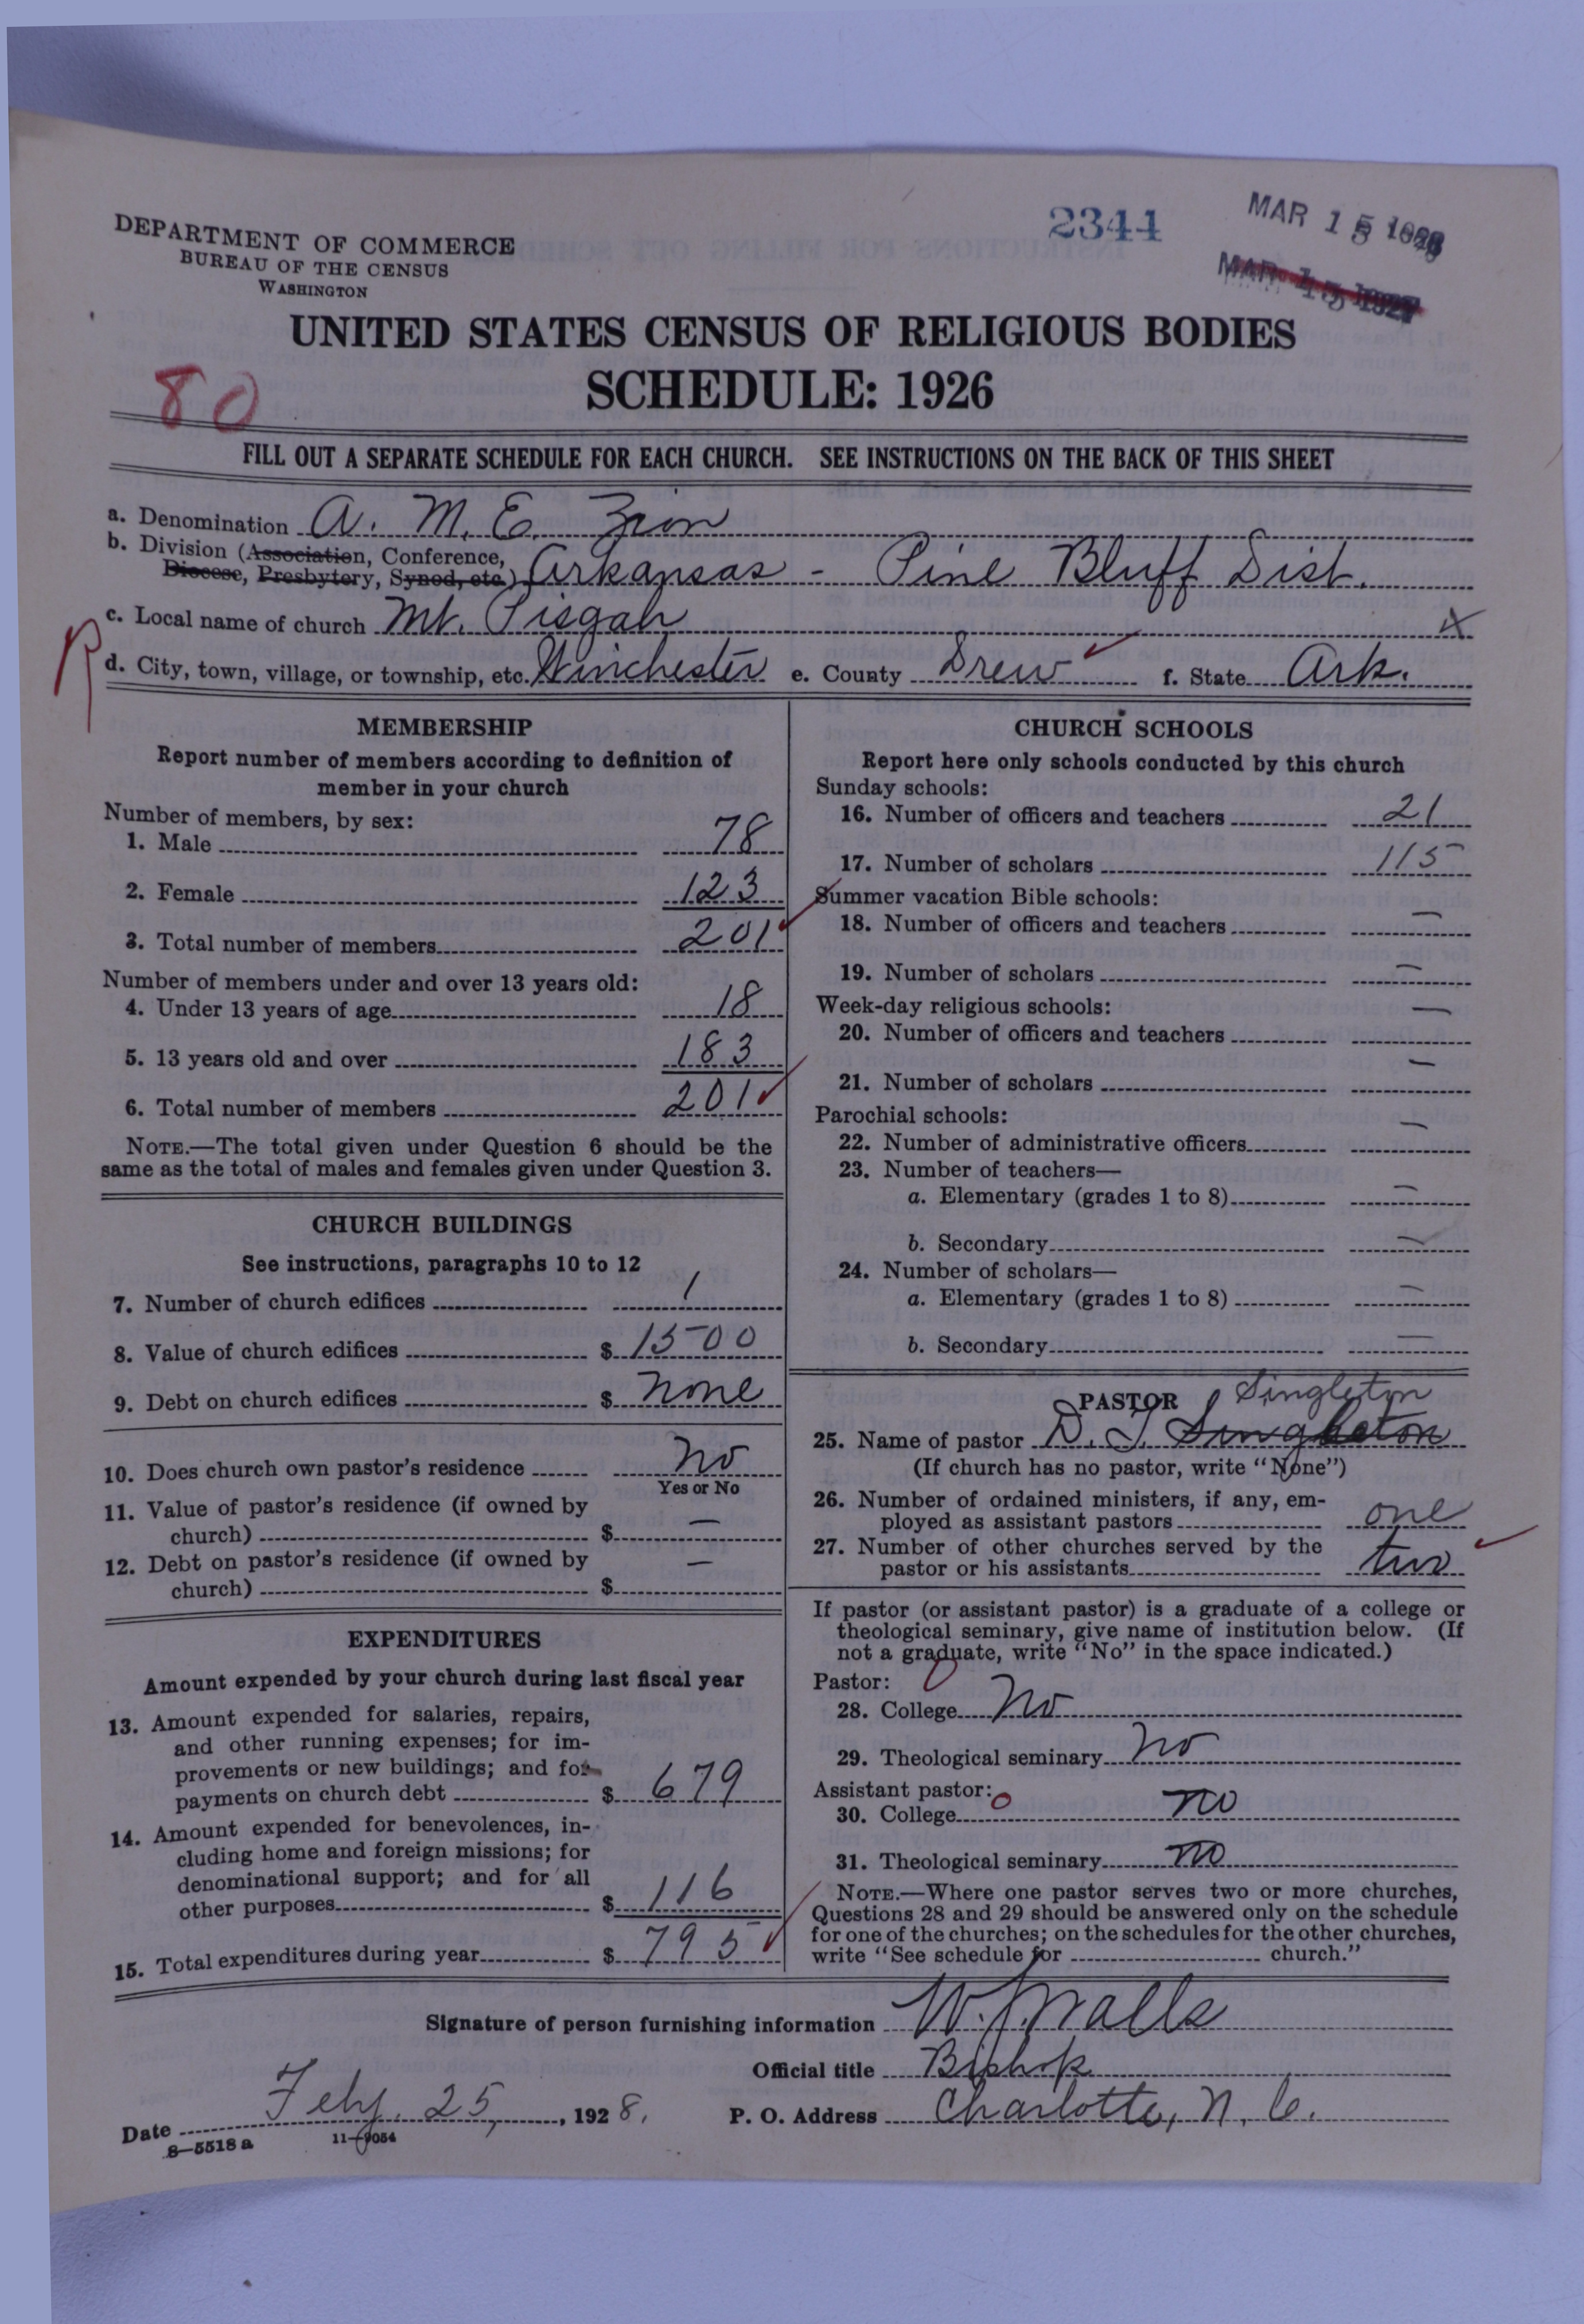 DEPARTMENT OF COMMERCE
BUREAU OF THE CENSUS
WASHINGTON
2344
MAR 15 1928
MAR 15 1927
UNITED STATES CENSUS OF RELIGIOUS BODIES
SCHEDULE: 1926
80
FILL OUT A SEPARATE SCHEDULE FOR EACH CHURCH. SEE INSTRUCTIONS ON THE BACK OF THIS SHEET
a. Denomination A. M. E. Zion
b. Division (Association, Conference,
Diocese, Presbytery, Synod, etc.) Arkansas - Pine Bluff Dist.
c. Local name of church Mt. Pisgah X
R
d. City, town, village, or township, etc. Winchester e. County Drew f. State Ark.
MEMBERSHIP
Report number of members according to definition of
member in your church
Number of members, by sex:
1. Male 78
2. Female 123
3. Total number of members 201
Number of members under and over 13 years old:
4. Under 13 years of age 18
5. 13 years old and over 183
6. Total number of members 201
NOTE.—The total given under Question 6 should be the
same as the total of males and females given under Question 3.
CHURCH BUILDINGS
See instructions, paragraphs 10 to 12
7. Number of church edifices 1
8. Value of church edifices $ 1500
9. Debt on church edifices $ none
10. Does church own pastor's residence no
Yes or No
11. Value of pastor's residence (if owned by
church) $ —
12. Debt on pastor's residence (if owned by
church) $ —
EXPENDITURES
Amount expended by your church during last fiscal year
13. Amount expended for salaries, repairs,
and other running expenses; for im-
provements or new buildings; and for
payments on church debt $ 679
14. Amount expended for benevolences, in-
cluding home and foreign missions; for
denominational support; and for all
other purposes $ 116
15. Total expenditures during year $ 795
CHURCH SCHOOLS
Report here only schools conducted by this church
Sunday schools:
16. Number of officers and teachers 21
17. Number of scholars 115
Summer vacation Bible schools:
18. Number of officers and teachers —
19. Number of scholars —
Week-day religious schools:
20. Number of officers and teachers —
21. Number of scholars —
Parochial schools:
22. Number of administrative officers —
23. Number of teachers—
a. Elementary (grades 1 to 8) —
b. Secondary —
24. Number of scholars—
a. Elementary (grades 1 to 8) —
b. Secondary —
PASTOR Singleton
25. Name of pastor D. J. Singleton
(If church has no pastor, write "None")
26. Number of ordained ministers, if any, em-
ployed as assistant pastors one
27. Number of other churches served by the
pastor or his assistants two
If pastor (or assistant pastor) is a graduate of a college or
theological seminary, give name of institution below. (If
not a graduate, write "No" in the space indicated.)
Pastor: 0
28. College No
29. Theological seminary no
Assistant pastor: 0
30. College no
31. Theological seminary no
NOTE.—Where one pastor serves two or more churches,
Questions 28 and 29 should be answered only on the schedule
for one of the churches; on the schedules for the other churches,
write "See schedule for church."
Signature of person furnishing information W. J. Walls
Official title Bishop
Date Feby. 25, 1928. P. O. Address Charlotte, N. C.
8—5518 a 11—9054